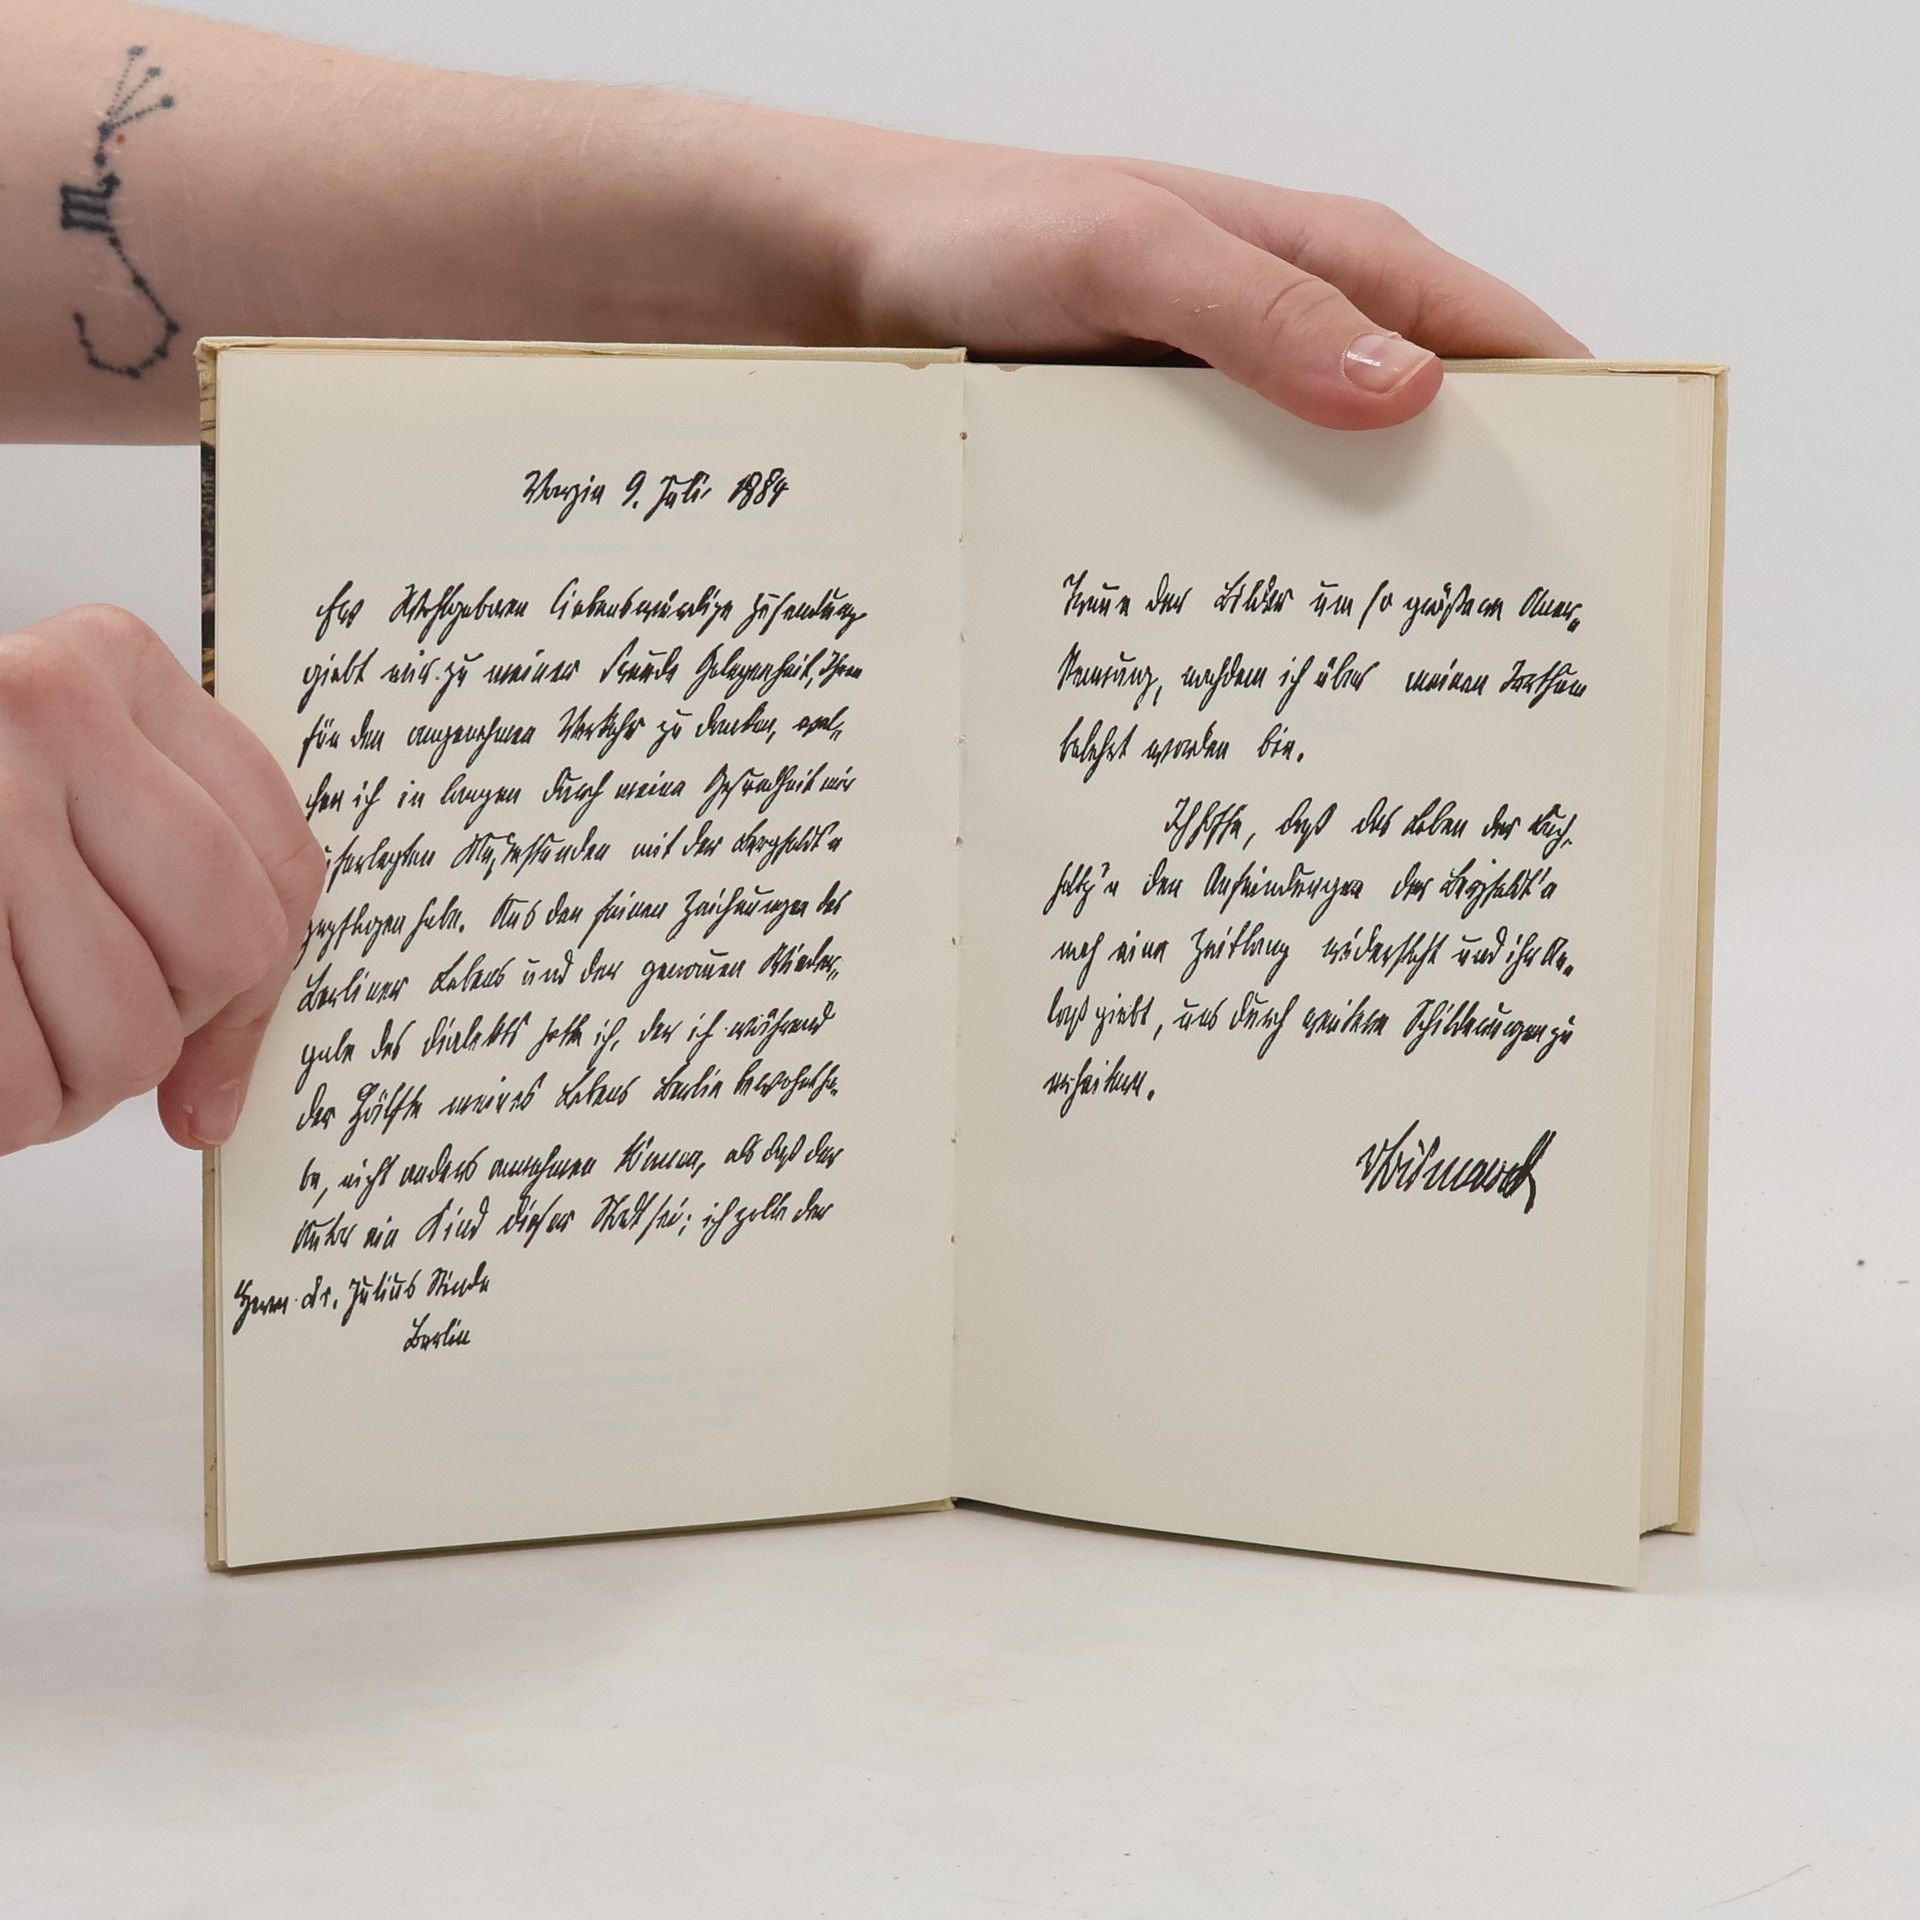 Varzin 9. Juli 1884
Ew Wohlgeboren liebenswürdige Zusendung
giebt mir zu meiner Freude Gelegenheit, Ihnen
für den angenehmen Verkehr zu danken, wel-
chen ich in langen durch meine Gesundheit mir
auferlegten Mußestunden mit der Bergfeldt'n
gepflogen habe. Aus den feinen Zeichnungen des
Berliner Lebens und der genauen Wieder-
gabe des Dialekts hatte ich, der ich während
der Hälfte meines Lebens Berlin bewohnt ha-
be, nicht anders annehmen können, als daß der
Autor ein Kind dieser Stadt sei; ich zolle der
Herrn Dr. Julius Stinde
Berlin
Treue der Bilder um so größere Aner-
kennung, nachdem ich über meinen Irrthum
belehrt worden bin.
Ich hoffe, daß das Leben der Buch-
holtz'n den Anfeindungen der Bergfeldt'n
noch eine Zeitlang widersteht und ihr An-
laß giebt, uns durch weitere Schilderungen zu
erheitern.
v Bismarck